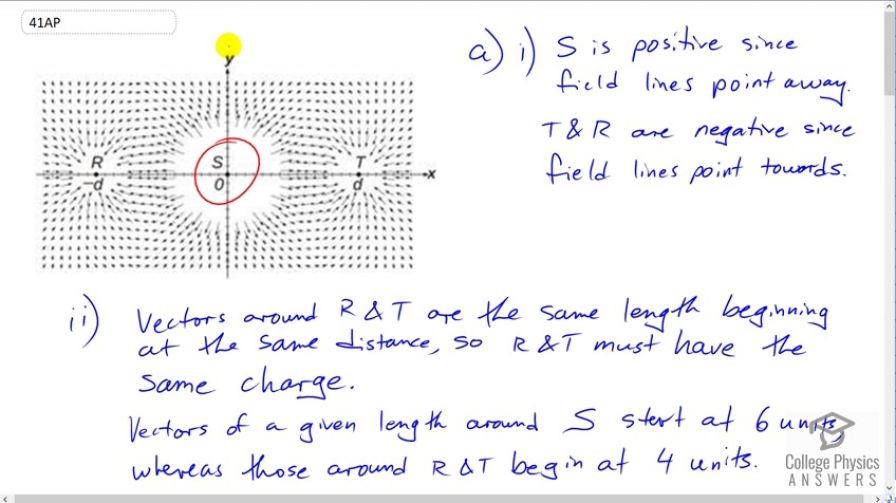 41AP
y
R
S
T
-d
0
d
x
a) i) S is positive since
field lines point away.
T & R are negative since
field lines point towards.
ii) Vectors around R & T are the same length beginning
at the same distance, so R & T must have the
same charge.
Vectors of a given length around S start at 6 units,
whereas those around R & T begin at 4 units.
College Physics
ANSWERS